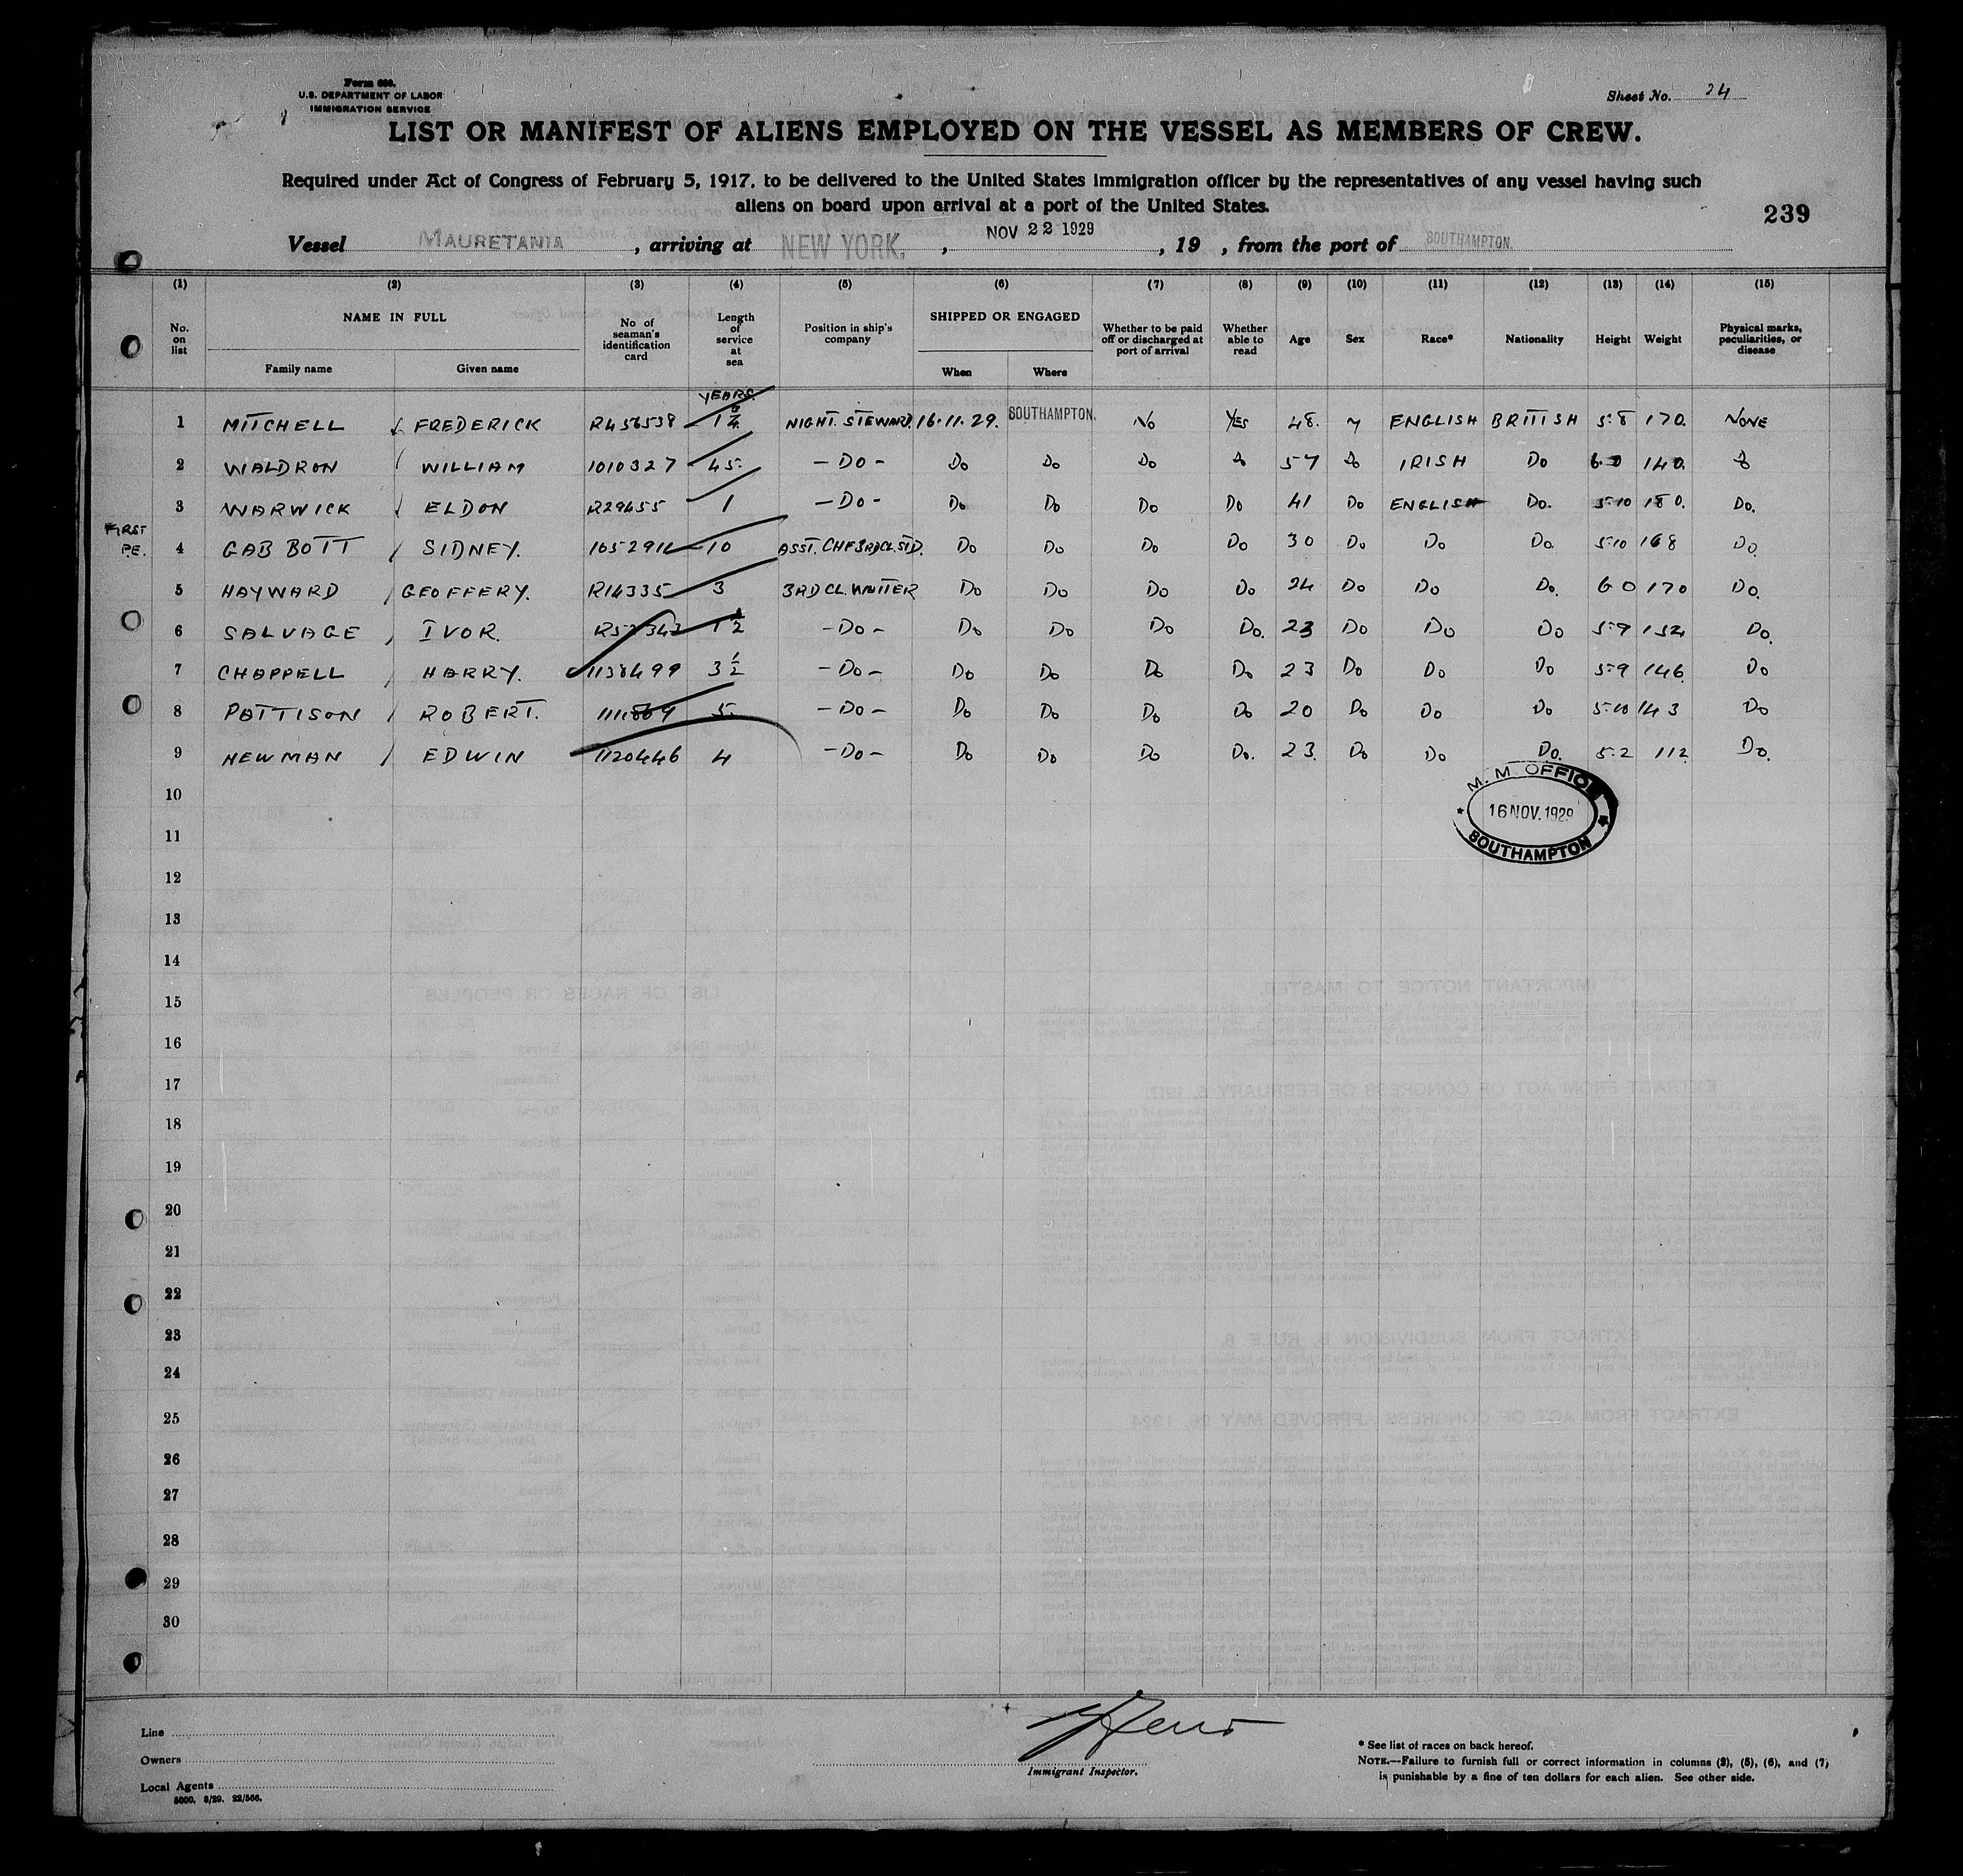 Form 680.
U.S. DEPARTMENT OF LABOR
IMMIGRATION SERVICE
Sheet No. 24
LIST OR MANIFEST OF ALIENS EMPLOYED ON THE VESSEL AS MEMBERS OF CREW.
Required under Act of Congress of February 5, 1917, to be delivered to the United States immigration officer by the representatives of any vessel having such
aliens on board upon arrival at a port of the United States.
239
Vessel MAURETANIA, arriving at NEW YORK, NOV 22 1929, 19 , from the port of SOUTHAMPTON.
(1) (2) (3) (4) (5) (6) (7) (8) (9) (10) (11) (12) (13) (14) (15)
No. on list
NAME IN FULL
Family name
Given name
No of seaman's identification card
Length of service at sea
Position in ship's company
SHIPPED OR ENGAGED
When
Where
Whether to be paid off or discharged at port of arrival
Whether able to read
Age
Sex
Race*
Nationality
Height
Weight
Physical marks, peculiarities, or disease
YEARS.
1 MITCHELL FREDERICK R456538 1 NIGHT. STEWARD. 16.11.29. SOUTHAMPTON. No YES 48. M ENGLISH BRITISH 5.8 170. NONE
2 WALDRON WILLIAM 1010327 45. -Do- Do Do Do Do 57 Do IRISH Do 6.0 140. Do
3 WARWICK ELDON R29655 1 -Do- Do Do Do Do 41 Do ENGLISH Do. 5.10 180. Do.
FIRST P.E. 4 GABBOTT SIDNEY. 10 ASST. CHF 3RD CL STD. Do Do Do Do 30 Do Do Do. 5.10 168 Do.
5 HAYWARD GEOFFERY. R14335 3 3RD CL. WAITER Do Do Do Do 24 Do Do Do. 6 0 170 Do.
6 SALVAGE IVOR. 1 1/2 -Do- Do Do Do Do. 23 Do Do Do 5.9 152 Do.
7 CHAPPELL HARRY. 1138499 3 1/2 -Do- Do Do Do Do 23 Do Do Do 5.9 146. Do
8 PATTISON ROBERT. 5. -Do- Do Do Do Do 20 Do Do Do 5.10 143 Do
9 NEWMAN EDWIN 1120446 4 -Do- Do Do Do Do. 23. Do Do Do. 5.2 112. Do.
M. M. OFFICE
16 NOV. 1929
SOUTHAMPTON
10
11
12
13
14
15
16
17
18
19
20
21
22
23
24
25
26
27
28
29
30
Line
Owners
Local Agents
5000. 8/29. 22/566.
Immigrant Inspector.
* See list of races on back hereof.
NOTE.—Failure to furnish full or correct information in columns (2), (5), (6), and (7)
is punishable by a fine of ten dollars for each alien. See other side.